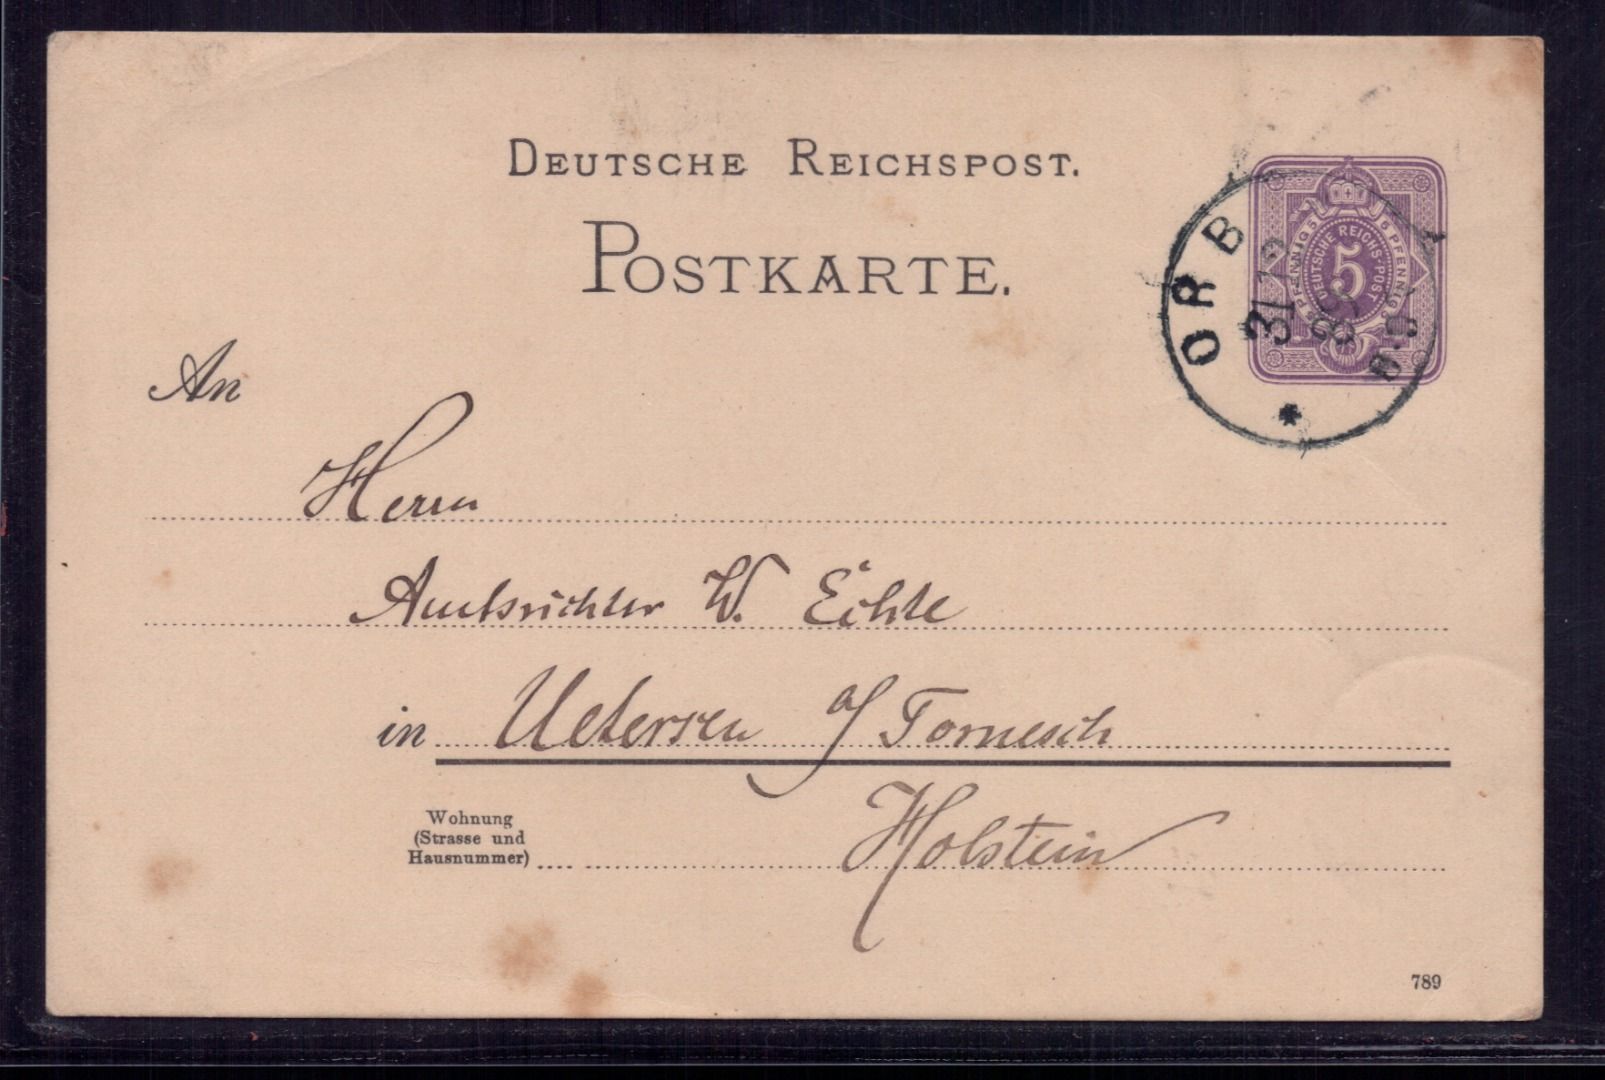 DEUTSCHE REICHSPOST.
POSTKARTE.
5 PFENNIG 5 5 PFENNIG 5
DEUTSCHE REICHS-POST
5
ORB
31 12
88
*
An
Herrn
Amtsrichter W. Echte
in Uetersen a/ Tornesch
Holstein
Wohnung
(Strasse und
Hausnummer)
789